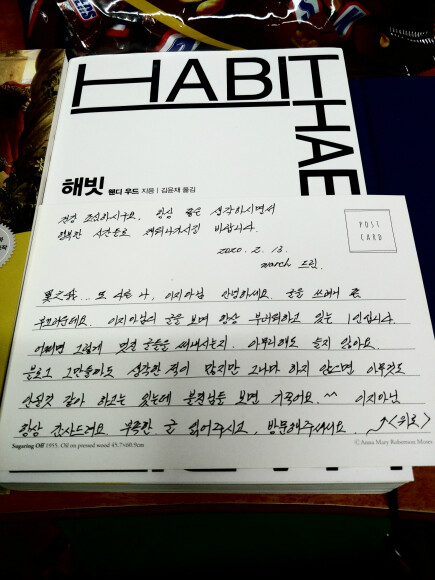 HABIT
HAE
해빗 웬디 우드 지음 | 김윤재 옮김
건강 조심하시구요, 항상 좋은 생각하시면서
행복한 시간들로 채워나가시길 바랍니다.
2020. 2. 13.
march 드림.
POST
CARD
異之我... 또 다른 나, 이지아님 안녕하세요. 글을 쓰려니 좀
부끄러운데요. 이지아님의 글을 보며 항상 부러워하고 있는 1인입니다.
어쩌면 그렇게 멋진 글들을 써내시는지. 아무리해도 늘지 않아요.
블로그 그만둘까도 생각한 적이 많지만 그나마 하지 않으면 아무것도
안될것 같아 하고는 있는데 블친님들 보면 기죽어요. ^^ 이지아님
항상 감사드려요. 부족한 글 읽어주시고, 방문해주셔서요. ↗<위로>
Sugaring Off 1955, Oil on pressed wood 45.7×60.9cm
©Anna Mary Robertson Moses